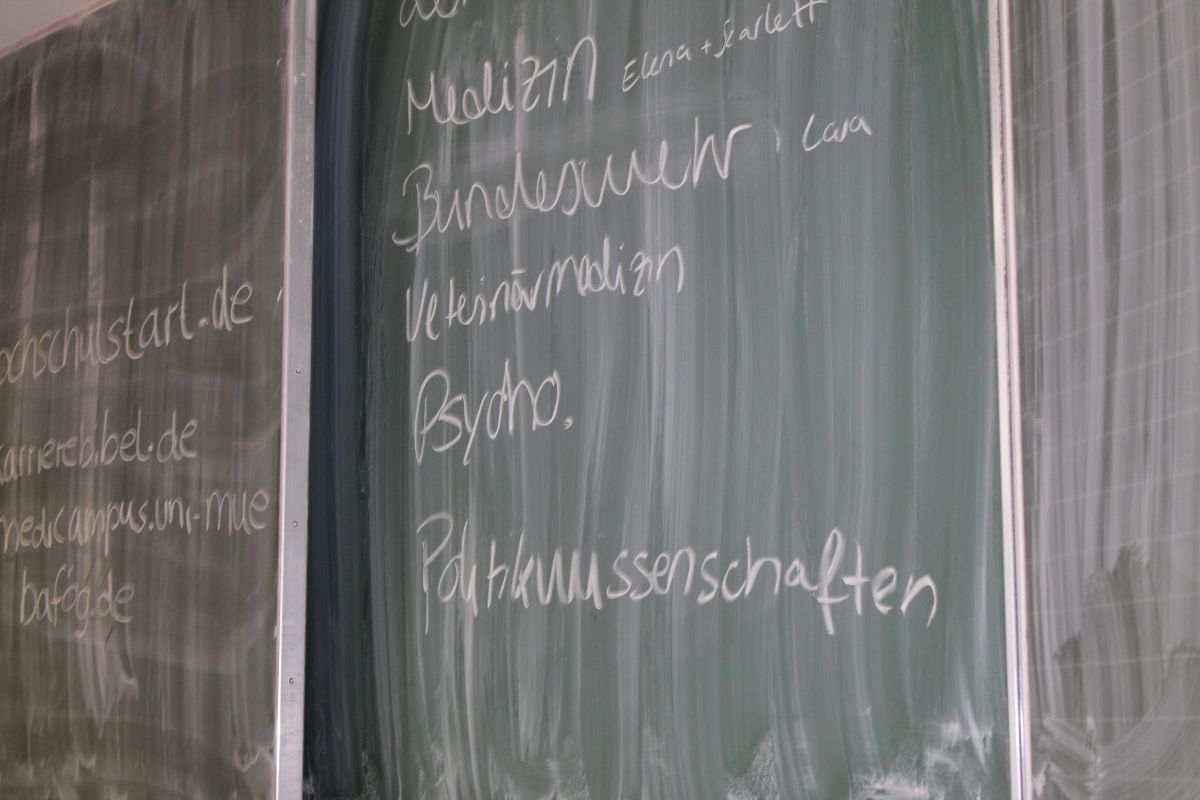 ochschulstart.de
karrierebibel.de
medicampus.uni-mue
bafög.de
Medizin Elena + Scarlett
Bundeswehr, Lara
Veterinärmedizin
Psycho.
Politikwissenschaften